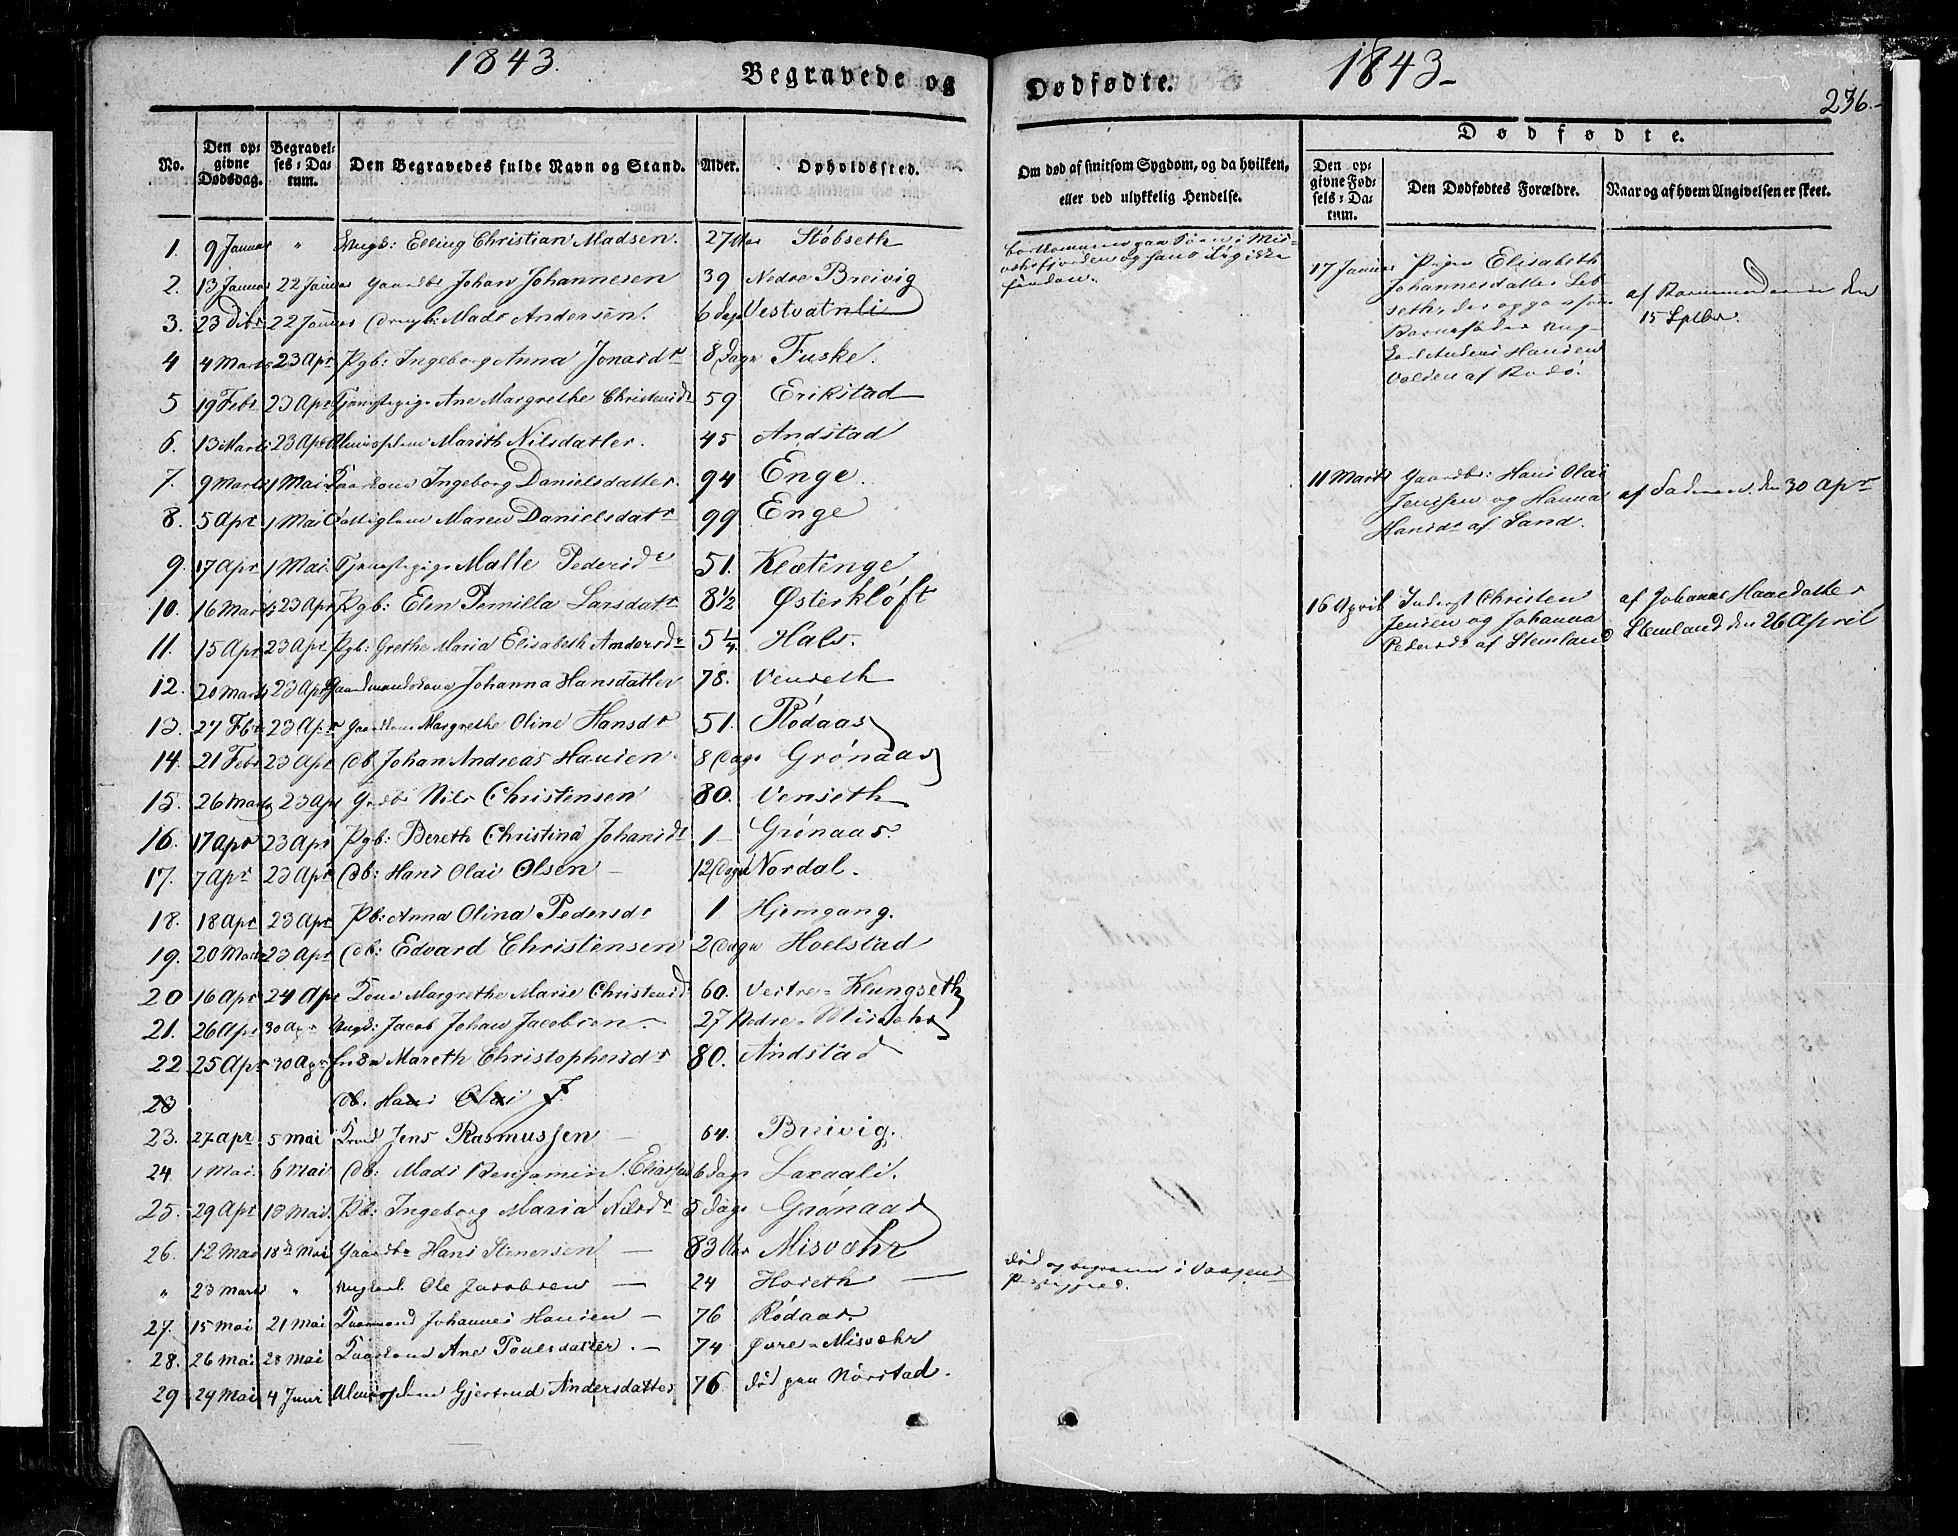 1843.
Begravede og
No. Den opgivne Dødsdag. Begravelses-Datum. Den Begravedes fulde Navn og Stand. Alder. Opholdssted.
1. 9 Januar " Ungk: Elling Christian Madsen. 27 Aar Støbseth
2. 13 Januar 22 Januar Gaardbr Johan Johannesen 39 Nedre Breivig
3. 23 Dbr 22 Januar Drengb: Mads Andersen. 6 Dage Vestvatnli
4 4 Marts 23 Apr Pgb: Ingeborg Anna Jonasdr 8 Dage Fuske.
5 19 Febr 23 Apr Tjenestepige Ane Margrethe Christensdr 59 Erikstad
6. 13 Marts 23 Apr Marith Nilsdatter. 45 Andstad
7. 9 Marts 1 Mai Kaarkone Ingeborg Danielsdatter. 94 Enge.
8. 5 Apr 1 Mai Fattiglem Maren Danielsdatr 99 Enge
9. 17 Apr 1 Mai Tjenestepige Malle Pedersdr 51. Kletenge
10. 16 Marts 23 Apr Pgb: Elen Pernilla Larsdatr 8 1/2 Østerkløft
11. 15 Apr 23 Apr Pgb: Grethe Maria Elisabeth Andersdr 5 1/4 Hals.
12. 20 Marts 23 Apr Johanna Hansdatter 78. Venseth
13. 27 Fbr 23 Apr Gaardkone Margrethe Oline Hansdr 51. Rødaas
14. 21 Febr 23 Apr Db. Johan Andreas Hansen 8 Dage Grønaas
15. 26 Marts 23 Apr Grdbr Nils Christensen 80. Venseth
16. 17 Apr 23 Apr Pgb: Bereth Christina Johansdr 1 Grønaas.
17. 7 Apr 23 Apr Db: Hans Olai Olsen 12 Dage Nordal.
18. 18 Apr 23 Apr Pb: Anna Olina Pedersdr 1 Hjemgang.
19. 20 Marts 23 Apr Db: Edvard Christensen 2 Dage Hoelstad
20 16 Apr 24 Apr Kone Margrethe Marie Christensdr 60. Vestre Klungseth
21. 26 Apr 30 Apr Ungk: Jacob Johan Jacobsen 27 Nedre Misvæhr
22 25 Apr 30 Apr Enke Mareth Christophersdr 80. Andstad
23 Db. Hans Olai J
23. 27 Apr 5 Mai Jens Rasmussen 64. Breivig.
24. 1 Mai. 6 Mai Db: Mads Benjamin Eliassen 6 Dage Laxaali.
25. 29 Apr 18 Mai. Pb: Ingeborg Maria Nilsdr 5 Dage Grønaas
26. 12 Mai 18de Mai Gaardbr Hans Stenersen 83 Aar Misvæhr
" 23 Marts " Ungkarl Ole Jacobsen 24 Horeth
27. 15 Mai 21 Mai Kaarmand Johannes Hansen 76 Rødaas.
28. 26 Mai 28 Mai Kaarkone Ane Poulsdatter. 74 Øvre Misvæhr
29 24 Mai 4 Juni Gjertrud Andersdatter 76. død paa Nørstad.
Dødfødte.
1843
236.
Dødfødte.
Om død af smitsom Sygdom, og da hvilken, eller ved ulykkelig Hendelse.
Den opgivne Fødsels-Datum. Den Dødfødtes Forældre. Naar og af hvem Angivelsen er skeet.
bortkommen paa Søen i Mis-
væhrfjorden og hans Lig ikke
funden.
17 Januar Pigen Elisabeth
Johannesdatter
seth, der opgav som
Barnefader Ung-
karl Anders Hansen
Valden af Rødø.
af Barnemoderen den
15 Septbr.
11 Marts Gaardbr: Hans Olai
Jenssen og Hanna
Hansdr af Sand.
af Faderen den 30 Apr
16 April Inderst Christen
Jensen og Johanna
Pedersdr af Stemland
af Johanna Hansdatter
Stemland den 26 April
død og begraven i Vaagens
Præstegjeld.